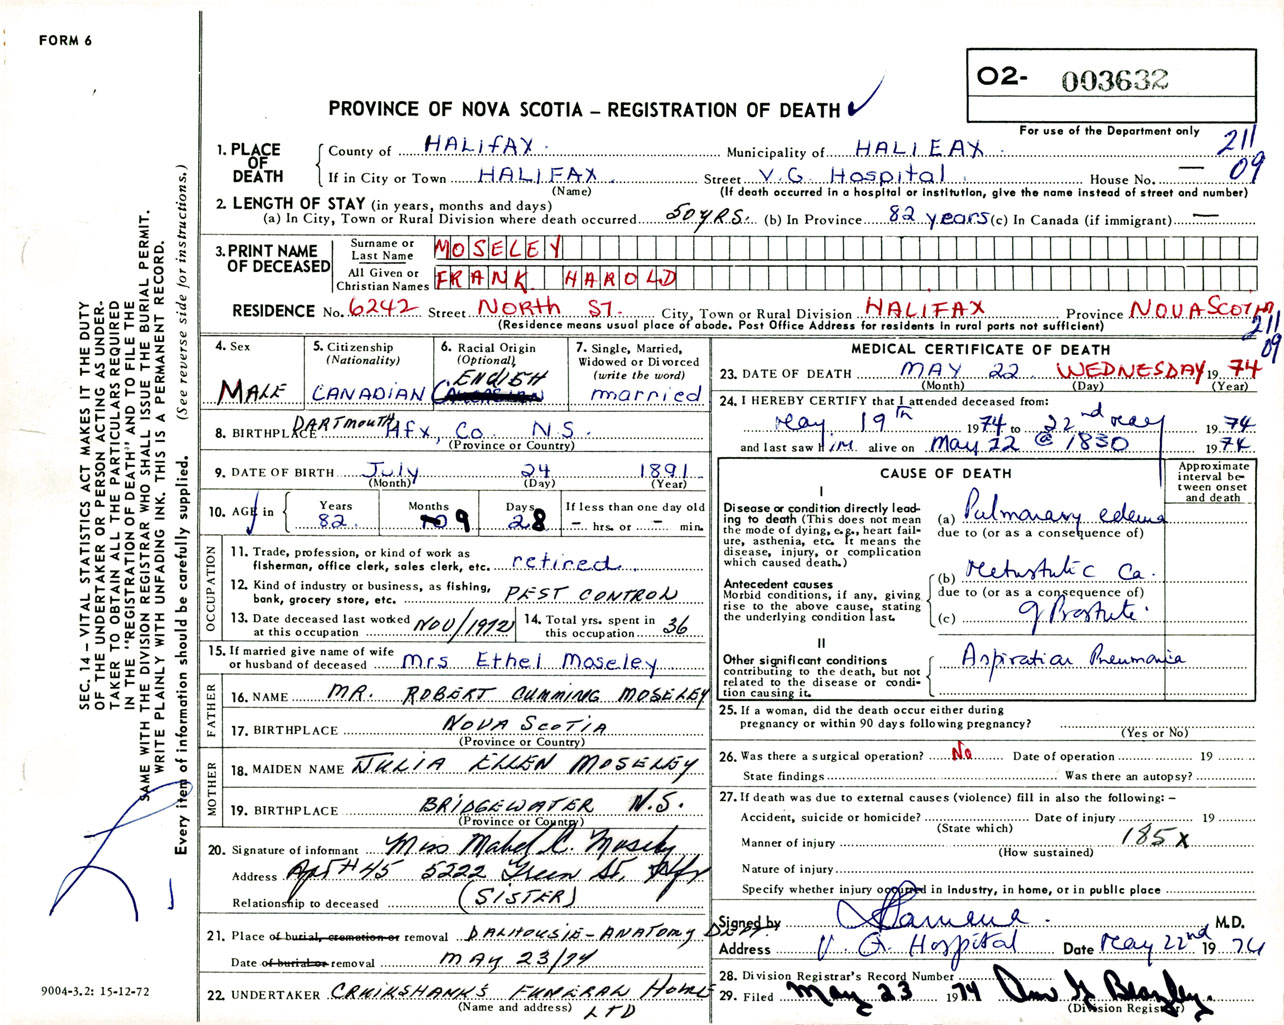 FORM 6
O2- 003632
PROVINCE OF NOVA SCOTIA – REGISTRATION OF DEATH ✓
For use of the Department only
211
09
1. PLACE OF DEATH
County of HALIFAX Municipality of HALIFAX
If in City or Town HALIFAX Street V.G. Hospital House No. —
(Name) (If death occurred in a hospital or institution, give the name instead of street and number)
2. LENGTH OF STAY (in years, months and days)
(a) In City, Town or Rural Division where death occurred 50 YRS. (b) In Province 82 years (c) In Canada (if immigrant) —
3. PRINT NAME OF DECEASED
Surname or Last Name MOSELEY
All Given or Christian Names FRANK HAROLD
RESIDENCE No. 6242 Street NORTH ST. City, Town or Rural Division HALIFAX Province NOVA SCOTIA
(Residence means usual place of abode. Post Office Address for residents in rural parts not sufficient)
211
09
4. Sex
MALE
5. Citizenship
(Nationality)
CANADIAN
6. Racial Origin
(Optional)
ENGLISH
7. Single, Married,
Widowed or Divorced
(write the word)
married
8. BIRTHPLACE DARTMOUTH Hfx, Co. N.S.
(Province or Country)
9. DATE OF BIRTH July 24 1891
(Month) (Day) (Year)
10. AGE in
Years 82
Months 9
Days 28
If less than one day old
– hrs. or – min.
OCCUPATION
11. Trade, profession, or kind of work as
fisherman, office clerk, sales clerk, etc. retired
12. Kind of industry or business, as fishing,
bank, grocery store, etc. PEST CONTROL
13. Date deceased last worked
at this occupation NOV/1972
14. Total yrs. spent in
this occupation 36
15. If married give name of wife
or husband of deceased Mrs Ethel Moseley
FATHER
16. NAME MR. ROBERT CUMMING MOSELEY
17. BIRTHPLACE NOVA SCOTIA
(Province or Country)
MOTHER
18. MAIDEN NAME JULIA ELLEN MOSELEY
19. BIRTHPLACE BRIDGEWATER N.S.
(Province or Country)
20. Signature of informant Miss Mabel C. Moseley
Address Apt # 45 5222 Green St, Hfx
Relationship to deceased (SISTER)
21. Place of burial, cremation or removal DALHOUSIE-ANATOMY DEPT.
Date of burial or removal MAY 23/74
22. UNDERTAKER CRUIKSHANKS FUNERAL HOME
(Name and address) LTD
MEDICAL CERTIFICATE OF DEATH
23. DATE OF DEATH MAY 22 WEDNESDAY 19 74
(Month) (Day) (Year)
24. I HEREBY CERTIFY that I attended deceased from:
May 19th 1974 to 22nd May 19 74
and last saw him alive on May 22 @ 1830 19 74
CAUSE OF DEATH
Approximate
interval be-
tween onset
and death
I
Disease or condition directly lead-
ing to death (This does not mean
the mode of dying, e.g., heart fail-
ure, asthenia, etc. It means the
disease, injury, or complication
which caused death.)
(a) Pulmonary edema
due to (or as a consequence of)
Antecedent causes
Morbid conditions, if any, giving
rise to the above cause, stating
the underlying condition last.
(b) Metastatic Ca.
due to (or as a consequence of)
(c) of Prostate.
II
Other significant conditions
contributing to the death, but not
related to the disease or condi-
tion causing it.
Aspiration Pneumonia
25. If a woman, did the death occur either during
pregnancy or within 90 days following pregnancy?
(Yes or No)
26. Was there a surgical operation? No Date of operation 19
State findings Was there an autopsy?
27. If death was due to external causes (violence) fill in also the following: –
Accident, suicide or homicide? Date of injury 19
(State which)
Manner of injury 185X
(How sustained)
Nature of injury
Specify whether injury occurred in industry, in home, or in public place
Signed by M.D.
Address V. G. Hospital Date May 22nd 19 74
28. Division Registrar's Record Number
29. Filed May 23 1974
(Division Registrar)
SEC. 14 – VITAL STATISTICS ACT MAKES IT THE DUTY
OF THE UNDERTAKER OR PERSON ACTING AS UNDER-
TAKER TO OBTAIN ALL THE PARTICULARS REQUIRED
IN THE "REGISTRATION OF DEATH" AND TO FILE THE
SAME WITH THE DIVISION REGISTRAR WHO SHALL ISSUE THE BURIAL PERMIT.
WRITE PLAINLY WITH UNFADING INK. THIS IS A PERMANENT RECORD.
Every item of information should be carefully supplied. (See reverse side for instructions.)
9004-3.2: 15-12-72